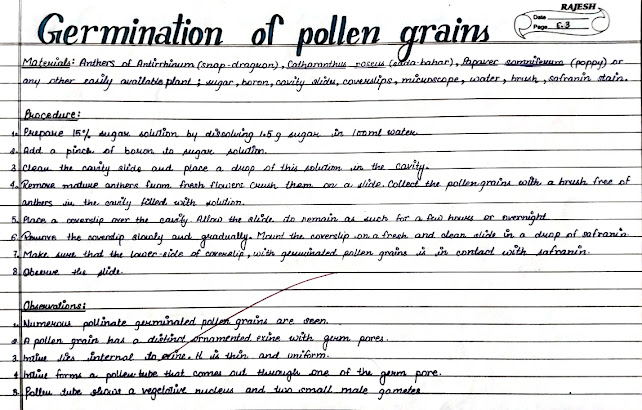 RAJESH
Date
Page E.3
Germination of pollen grains
Materials: Anthers of Antirrhinum (snap-dragron), Catharanthus roseus (sada-bahar), Papaver somniferum (poppy) or
any other easily available plant; sugar, boron, cavity slides, coverslips, microscope, water, brush, safranin stain.
Procedure:
1. Prepare 15% sugar solution by dissolving 1.5 g sugar in 100ml water
2. Add a pinch of boron to sugar solution.
3. Clean the cavity slide and place a drop of this solution in the cavity.
4. Remove mature anthers from fresh flowers crush them on a slide. Collect the pollen grains with a brush free of
anthers in the cavity filled with solution.
5. Place a coverslip over the cavity. Allow the slide to remain as such for a few hours or overnight.
6. Remove the coverslip slowly and gradually. Mount the coverslip on a fresh and clean slide in a drop of safranin
7. Make sure that the lower-side of coverslip, with germinated pollen grains is in contact with safranin.
8. Observe the slide.
Observations:
1. Numerous pollinate germinated pollen grains are seen.
2. A pollen grain has a distinct ornamented exine with germ pores.
3. Intine lies internal to exine. It is thin and uniform.
4. Intine forms a pollen tube that comes out through one of the germ pore.
5. Pollen tube shows a vegetative nucleus and two small male gametes